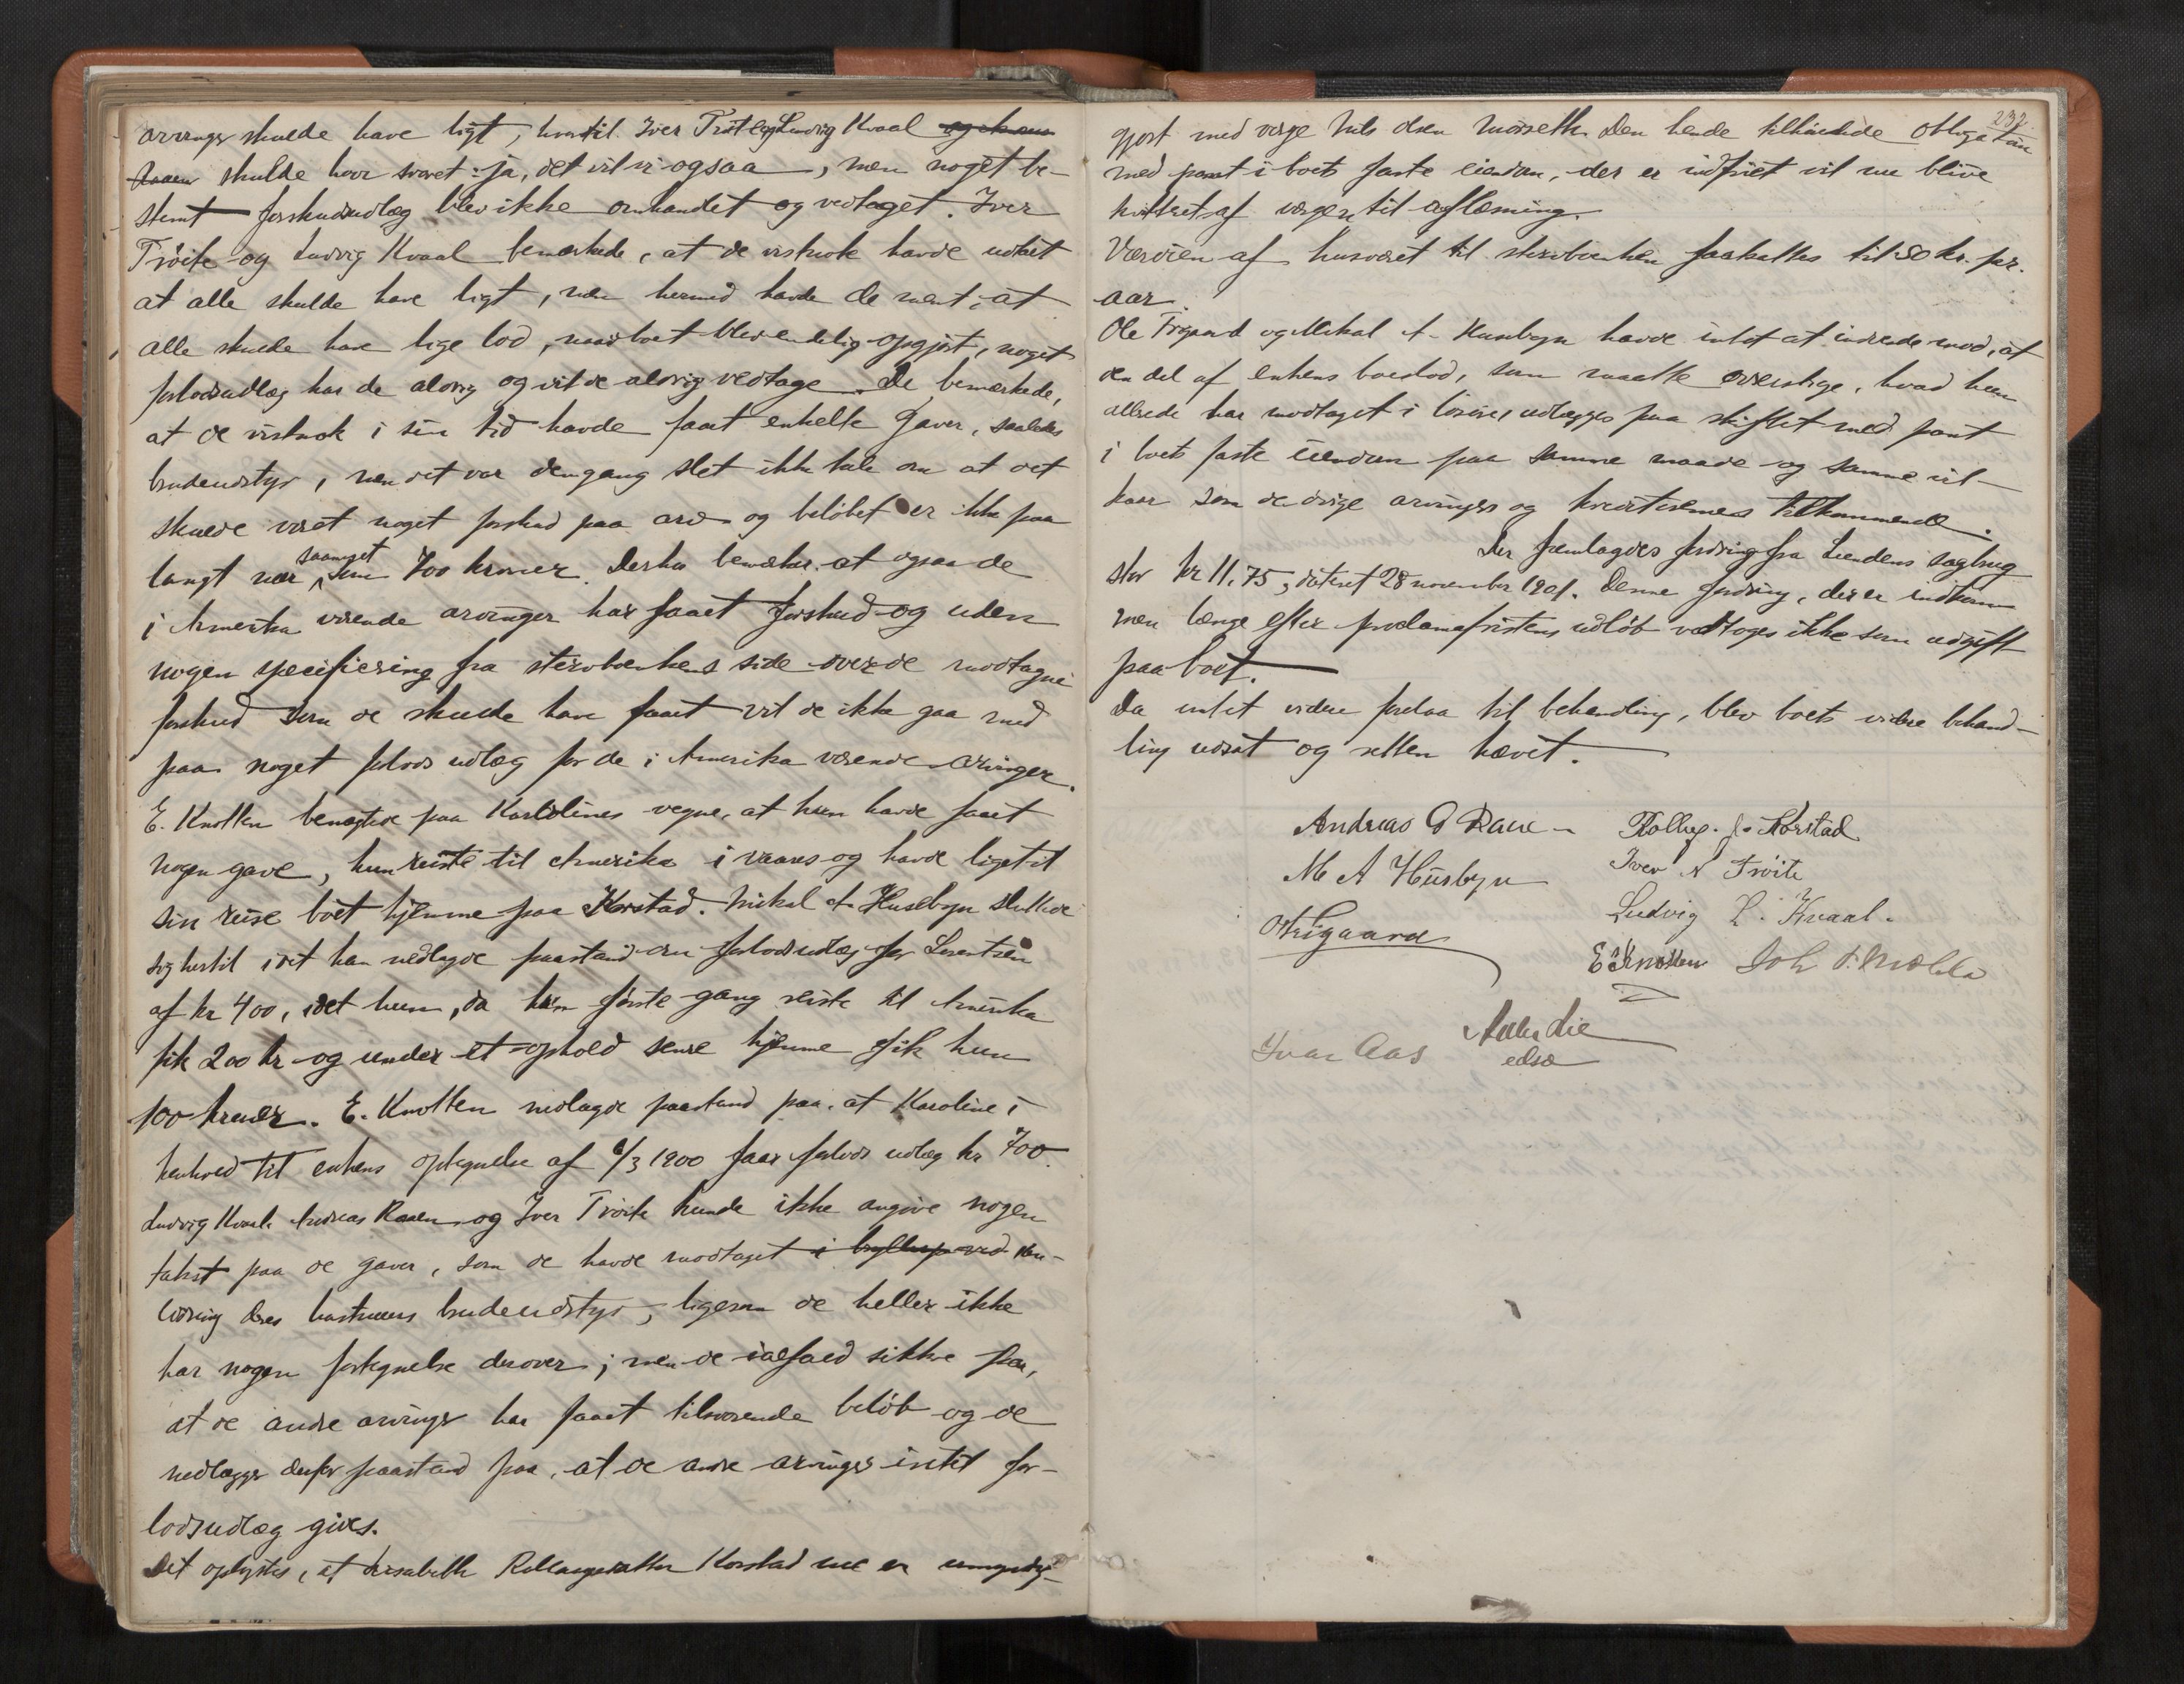 arvinger skulde have ligt, hvortil Iver Tröite og Ludvig Kvaal
skulde have svaret: ja, det vil vi ogsaa, men noget be-
stemt forskudsudlæg blev ikke omhandlet og vedtaget. Iver
Tröite og Ludvig Kvaal bemærkede, at de vistnok havde udtalt
at alle skulde have ligt, men hermed havde de ment, at
alle skulde have lige lod, naar boet blev endelig opgjort, noget
forlodsudlæg har de aldrig og vil de aldrig vedtage. De bemærkede,
at de vistnok i sin tid havde faaet enkelte gaver, saaledes
brudeudstyr, men det var dengang slet ikke tale om at det
skulde været noget forskud paa arv og belöbet er ikke paa
langt nær saameget som 700 kroner. Derhos bemærkes at ogsaa de
i Amerika værende arvinger har faaet forskud og uden
nogen specificering fra stervboenkens side over de modtagne
forskud som de skulde have faaet vil de ikke gaa med
paa noget forlods udlæg for de i Amerika værende arvinger.
E. Knotten benægtede paa Karolines vegne, at hun havde faaet
nogen gave, hun reiste til Amerika i vaares og havde ligetil
sin reise böet hjemme paa Korstad. Mikal A. Husebyn sluttede
sig hertil idet han nedlagde paastand om forlodsudlæg for
af kr 400, idet hun, da hun förste gang reiste til Amerika
fik 200 kr og under et ophold senere hjemme fik hun
100 kroner. E. Knotten nedlagde paastand paa, at Karoline i
henhold til enkens optegnelse af 6/3 1900 faar forlods udlæg kr 700.
Ludvig Kvaal, Andreas Raaen og Iver Tröite kunde ikke angive nogen
takst paa de gaver, som de havde modtaget i bryllup ved
deres hustruers brudeudstyr, ligesom de heller ikke
har nogen fortegnelse derover; men de ialfald sikkre paa,
at de andre arvinger har faaet tilsvarende belöb og de
nedlægger derfor paastand paa, at de andre arvinger intet for-
lodsudlæg gives.
Det oplystes, at Elisabeth Kollaugsdatter Korstad nu er umyndig-
232.
gjort med verge Nils Olsen Morseth. Den hende tilhörende obligation
med pant i boets faste eiendom, der er indfriet vil nu blive
kvitteret af vergen til aflæsning.
Værdien af husværet til stervboenken fastsattes til 80 kr. pr.
aar.
Ole Trigaard og Mikal A. Husebyn havde intet at indvende mod, at
den del af enkens boeslod, som maatte overstige, hvad hun
allerede har modtaget i lösöre, udlægges paa skiftet med pant
i boets faste eiendom paa samme maade og samme vil-
kaar som de övrige arvinger og kreditorernes tilkommende.
Der fremlagdes fordring fra Lundens sagbrug
stor kr 11,75, dateret 28 november 1901. Denne fordring, der er indkom-
men længe efter proclamafristens udlöb vedtoges ikke som udgift
paa boet.
Da intet videre forelaa til behandling, blev boets videre behand-
ling udsat og retten hævet.
Andreas O Raaen Kollug. J. Korstad
M A Husbyn Iver N Tröite
OTrigaard Ludvig L. Kvaal.
E Knotten Joh
Ivar Aas Lie
edsv